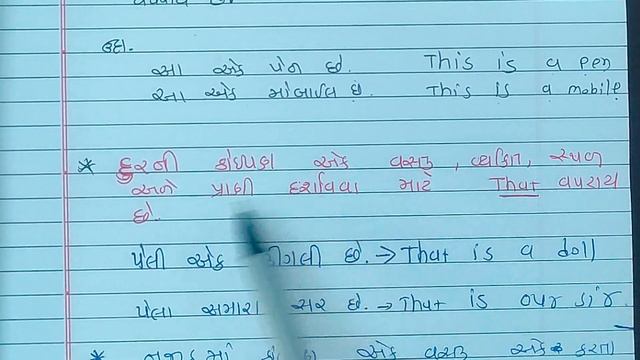 ઉદા.
આ એક પેન છે. This is a pen
આ એક મોબાઈલ છે. This is a mobile
* દુરની કોઈપણ એક વસ્તુ, વ્યક્તિ, સ્થળ
અને પ્રાણી દર્શાવવા માટે That વપરાય
છે.
પેલી એક છે. → That is a doll
પેલા અમારા સર છે. → That is our sir.
* નજીકમાં એક વસ્તુ એક કરતા